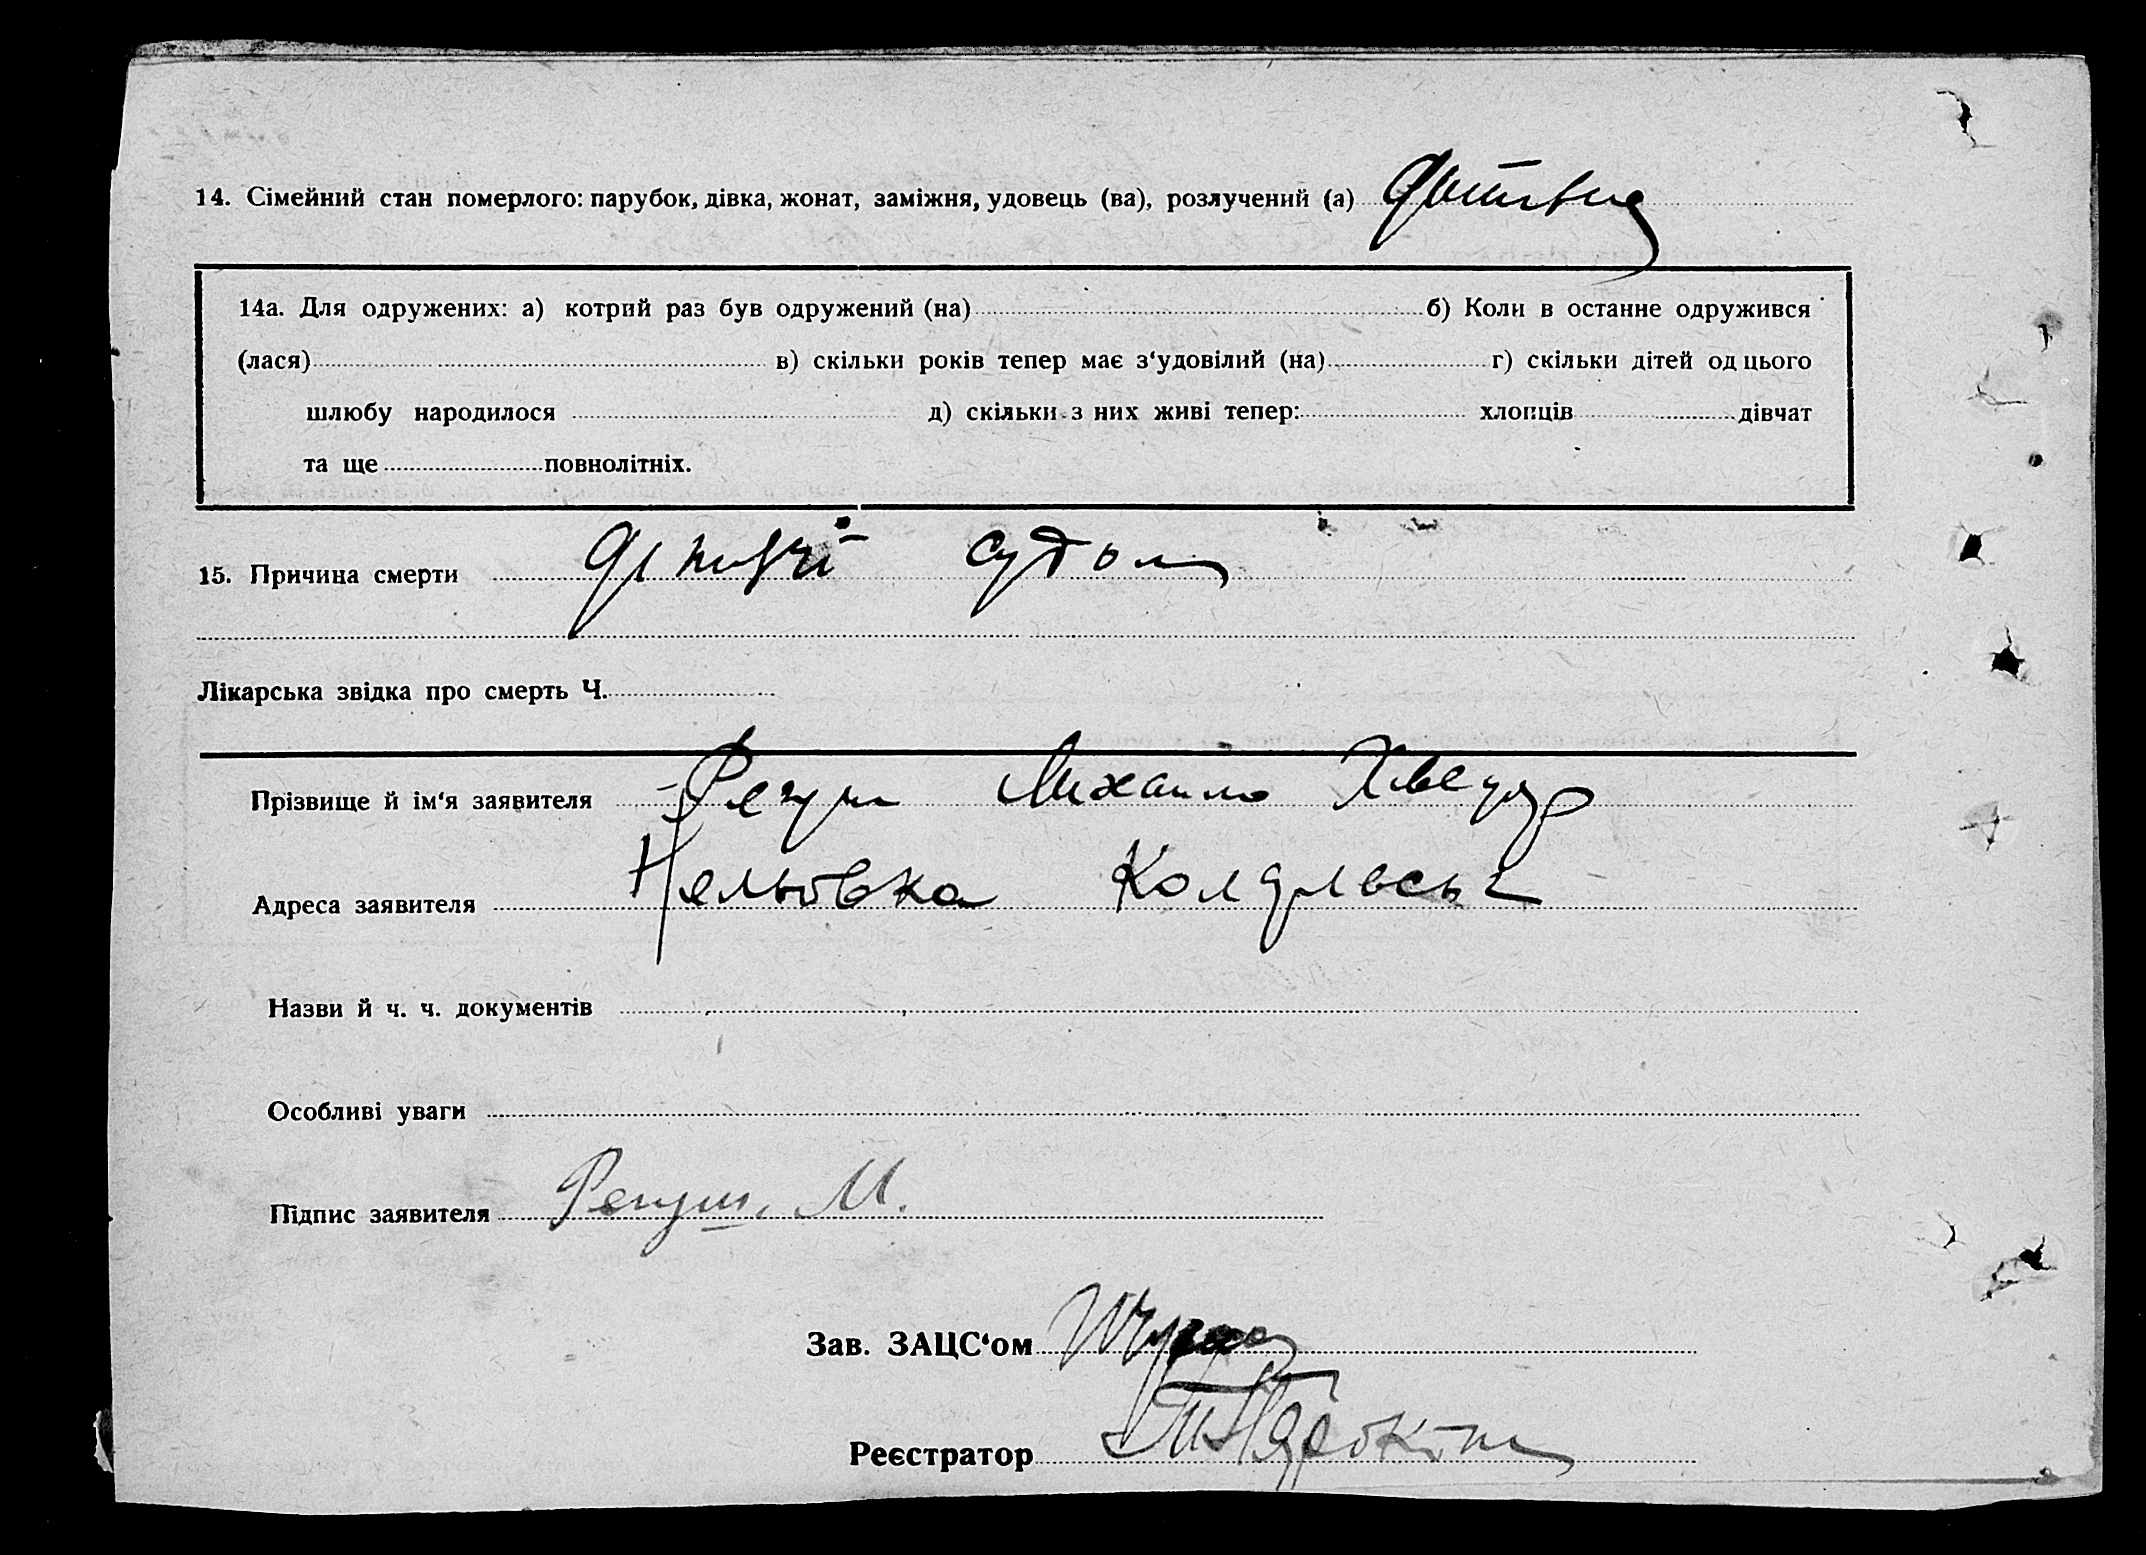 14. Сімейний стан померлого: парубок, дівка, жонат, заміжня, удовець (ва), розлучений (а) дитина
14а. Для одружених: а) котрий раз був одружений (на) б) Коли в останнє одружився
(лася) в) скільки років тепер має з‘удовілий (на) г) скільки дітей од цього
шлюбу народилося д) скільки з них живі тепер: хлопців дівчат
та ще повнолітніх.
15. Причина смерти
Лікарська звідка про смерть Ч.
Прізвище й ім‘я заявителя Регуш Михаило
Адреса заявителя
Назви й ч. ч. документів
Особливі уваги
Підпис заявителя Регуш. М.
Зав. ЗАЦС‘ом
Реєстратор